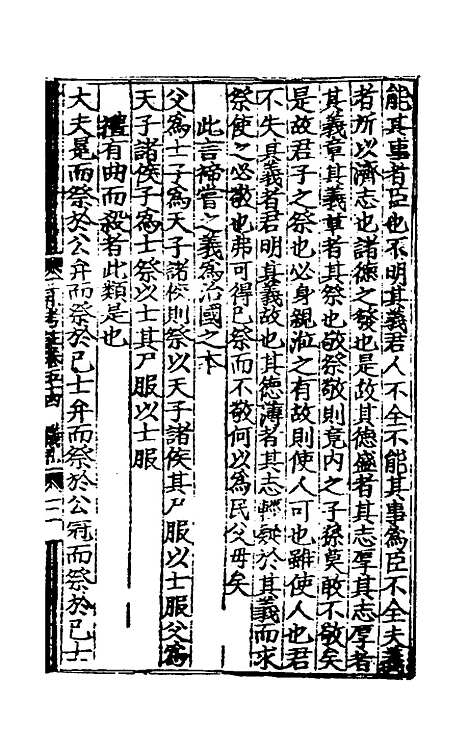 能其事者臣也不明其義君人不全不能其事為臣不全夫義
者所以濟志也諸德之發也是故其德盛者其志厚其志厚者
其義章其義章者其祭也敬祭敬則竟内之子孫莫敢不敬矣
是故君子之祭也必身親涖之有故則使人可也雖使人也君
不失其義者君明其義故也其德薄者其志輕疑於其義而求
祭使之必敬也弗可得已祭而不敬何以為民父母矣
此言禘嘗之義為治國之本
父為士子為天子諸侯則祭以天子諸侯其尸服以士服父為
天子諸侯子為士祭以士其尸服以士服
禮有曲而殺者此類是也
大夫冕而祭於公弁而祭於己士弁而祭於公冠而祭於己士